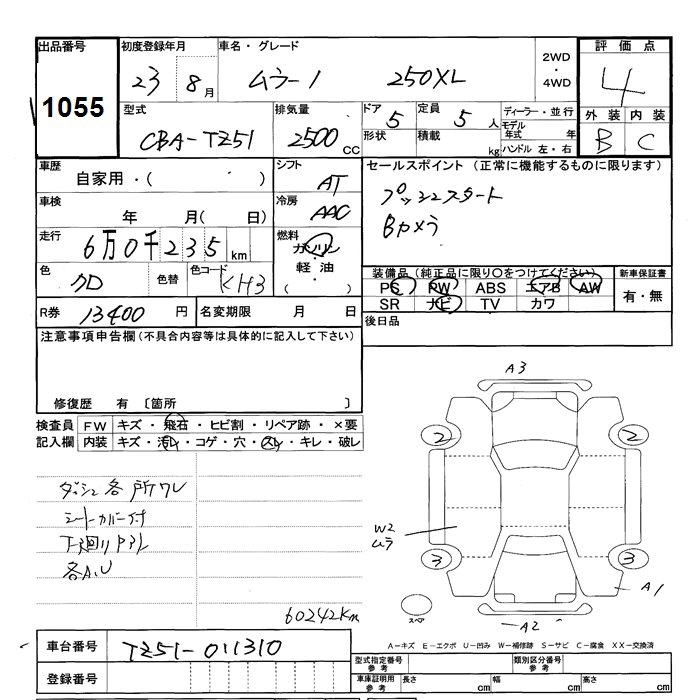 出品番号 初度登録年月 車名・グレード 2WD・4WD 評価点
1055 23 8月 ムラーノ 250XL 4
型式 排気量 ドア 5 定員 5人 ディーラー・並行 外装 内装
CBA-TZ51 2500CC 形状 積載 kg モデル年式 年 ハンドル 左・右 B C
車歴 シフト セールスポイント (正常に機能するものに限ります)
自家用・( ) AT プッシュスタート
車検 冷房 Bカメラ
年 月( 日) AAC
走行 燃料
6万0千235km ガソリン
軽・油
( )
色 色替 色コード 装備品 (純正品に限り○をつけてください) 新車保証書
クロ KH3 PS PW ABS エアB AW 有・無
SR ナビ TV カワ
R券 13400円 名変期限 月 日 後日品
注意事項申告欄 (不具合内容等は具体的に記入して下さい)
修復歴 有 〔箇所 〕
検査員 FW キズ・飛石・ヒビ割・リペア跡・×要
記入欄 内装 キズ・汚レ・コゲ・穴・スレ・キレ・破レ
ダッシュ各所ワレ
シートカバー付
下廻り
各A.U
60242Km
A3
2 2
W2
ムラ
3 3
A1
スペア
A2
A-キズ E-エクボ U-凹み W-補修跡 S-サビ C-腐食 XX-交換済
車台番号 TZ51-011310
登録番号
型式指定番号 参考 類別区分番号 参考
車庫証明用 参考 長さ cm 幅 cm 高さ cm